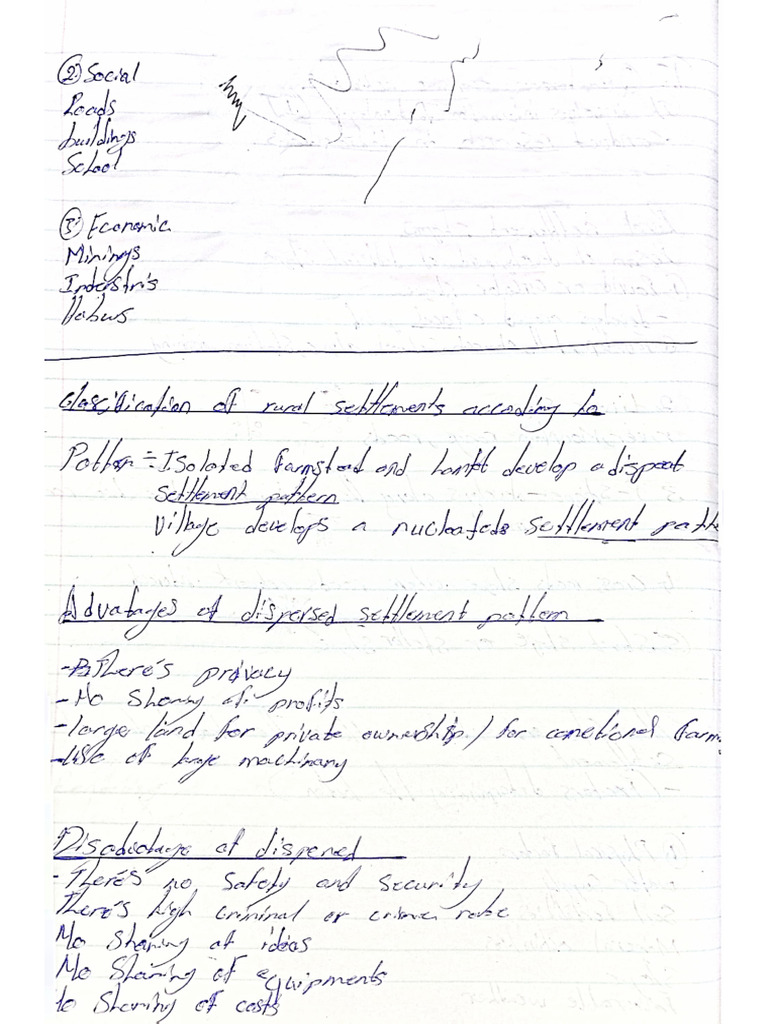 ② Social
Roads
buildings
School
③ Economic
Minings
Industris
Classification of rural settlements according to
Pattern :- Isolated farmstead and hamlet develop a dispeat
settlement pattern
Village develops a nucleateds settlement patte
Advatages of dispersed settlement pattern
- There's privacy
- No sharing of profits
- large land for private ownership / for farm
- Use of large machinary
Disadvatage of dispersed
- There's no safety and security
There's high criminal or crimes rate
No sharing of ideas
No sharing of equipments
No sharing of costs